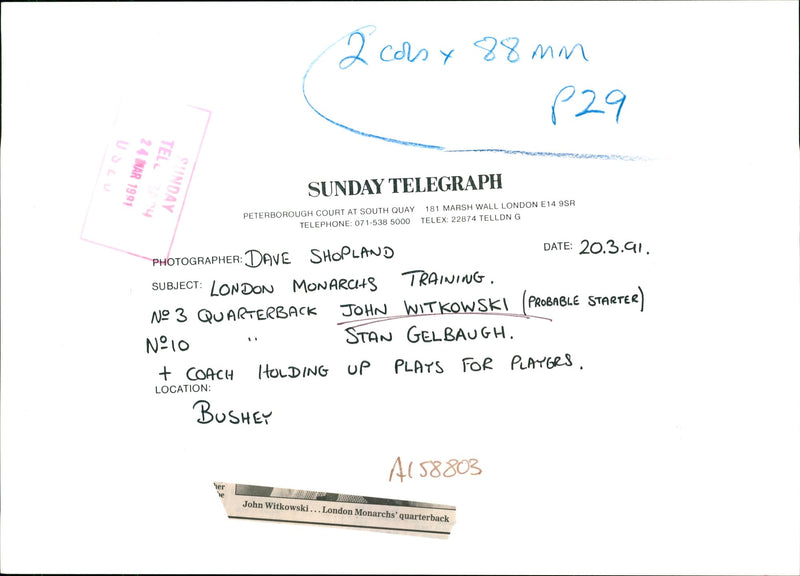 2 cols x 88 mm
P29
SUNDAY
TELE
24 MAR 1991
USED
SUNDAY TELEGRAPH
PETERBOROUGH COURT AT SOUTH QUAY 181 MARSH WALL LONDON E14 9SR
TELEPHONE: 071-538 5000 TELEX: 22874 TELLDN G
PHOTOGRAPHER: DAVE SHOPLAND DATE: 20.3.91.
SUBJECT: LONDON MONARCHS TRAINING.
Nº 3 QUARTERBACK JOHN WITKOWSKI (PROBABLE STARTER)
Nº 10 " STAN GELBAUGH.
+ COACH HOLDING UP PLAYS FOR PLAYERS.
LOCATION:
BUSHEY
A158803
John Witkowski ... London Monarchs' quarterback